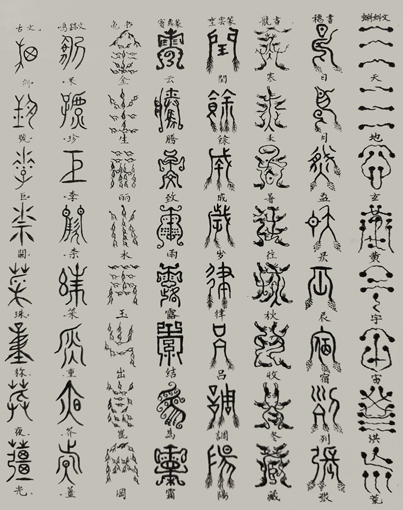 蝌蚪文
天地玄黄宇宙洪荒
穗書
日月盈昃辰宿列張
龍書
寒來暑往秋收冬藏
閏餘成岁律呂調陽
云騰致雨露結為霜
金生丽水玉出崑岡
果珍李柰菜重芥薑
古文
劍號巨闕珠称夜光